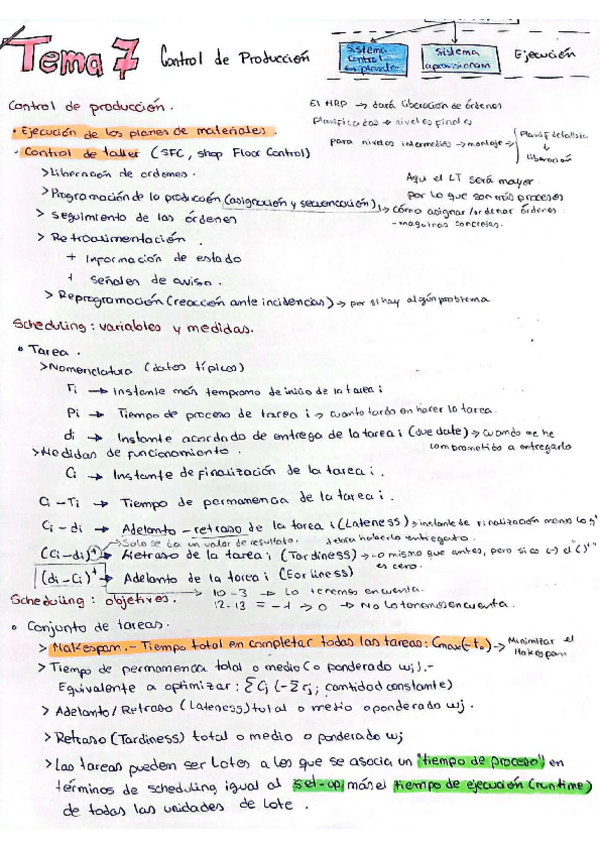 Tema 7 Control de Producción
Sistema control en planta
Sistema aprovisionam
Ejecución
Control de producción.
El MRP → dará liberación de órdenes
planificadas → niveles finales
para niveles intermedios → montaje →
Planif detallista
↓
liberación
· Ejecución de los planes de materiales.
· Control de taller (SFC, shop Floor Control)
> Liberación de ordenes.
Aqui el LT será mayor
por lo que son más procesos
> Programación de la producción (asignación y secuenciación) → cómo asignar/ordenar órdenes
- maquinas concretas.
> Seguimiento de las órdenes
> Retroalimentación.
+ Información de estado
+ Señales de aviso.
> Reprogramación (reacción ante incidencias) → por si hay algún problema
Scheduling: variables y medidas.
• Tarea.
> Nomenclatura (datos típicos)
ri → Instante más temprano de inicio de la tarea i
Pi → Tiempo de proceso de tarea i → cuanto tardo en hacer la tarea.
di → Instante acordado de entrega de la tarea i (due date) → cuando me he
comprometido a entregarlo
> Medidas de funcionamiento.
Ci → Instante de finalización de la tarea i.
Ci - ri → Tiempo de permanencia de la tarea i.
Ci - di → Adelanto - retraso de la tarea i (Lateness) → instante de finalización menos lo q'
debería haberlo entregado.
Solo se da un valor de resultado.
(Ci-di)⁺ → Retraso de la tarea i (Tardiness) → lo mismo que antes, pero si es (-) el "( )⁺"
es cero.
(di-Ci)⁺ → Adelanto de la tarea i (Earliness)
10 - 3 → Lo tenemos en cuenta.
12 - 13 = -1 → 0 → No lo tenemos en cuenta.
Scheduling: objetivos.
• Conjunto de tareas.
> Makespan.- Tiempo total en completar todas las tareas: Cmax (-to) → Minimizar el
Makespan
> Tiempo de permanencia total o medio (o ponderado wj).-
Equivalente a optimizar: ΣCj (-Σrj; cantidad constante)
> Adelanto/Retraso (Lateness) total o medio o ponderado wj.
> Retraso (Tardiness) total o medio o ponderado wj
> Las tareas pueden ser Lotes a los que se asocia un "tiempo de proceso" en
términos de scheduling igual al set-up más el tiempo de ejecución (runtime)
de todas las unidades de lote.